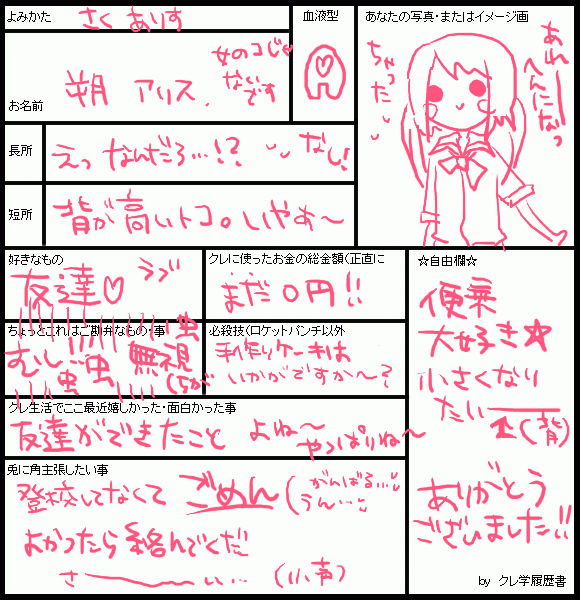 よみかた さく ありす
血液型
A
あなたの写真・またはイメージ画
お名前 朔 アリス
女のコじゃ
ないです
あれー
へんになっ
ちゃった
長所 えっ なんだろ…!? なし!
短所 背が高いトコ。いやぁ〜
好きなもの
友達♡ ラブ
クレに使ったお金の総金額(正直に
まだ0円!!
ちょっとこれはご勘弁なもの・事
むし 虫 虫 虫 無視
必殺技(ロケットパンチ以外
手作りケーキは
いかがですか〜?
クレ生活でここ最近嬉しかった・面白かった事
友達ができたこと よね〜
やっぱりね〜
兎に角主張したい事
登校してなくて ごめん (がんばる…
うん…
よかったら絡んでくだ
さ———ぃぃ… (小声)
☆自由欄☆
便乗
大好き☆
小さくなり
たい——
(背)
ありがとう
ございました!!
by クレ学履歴書